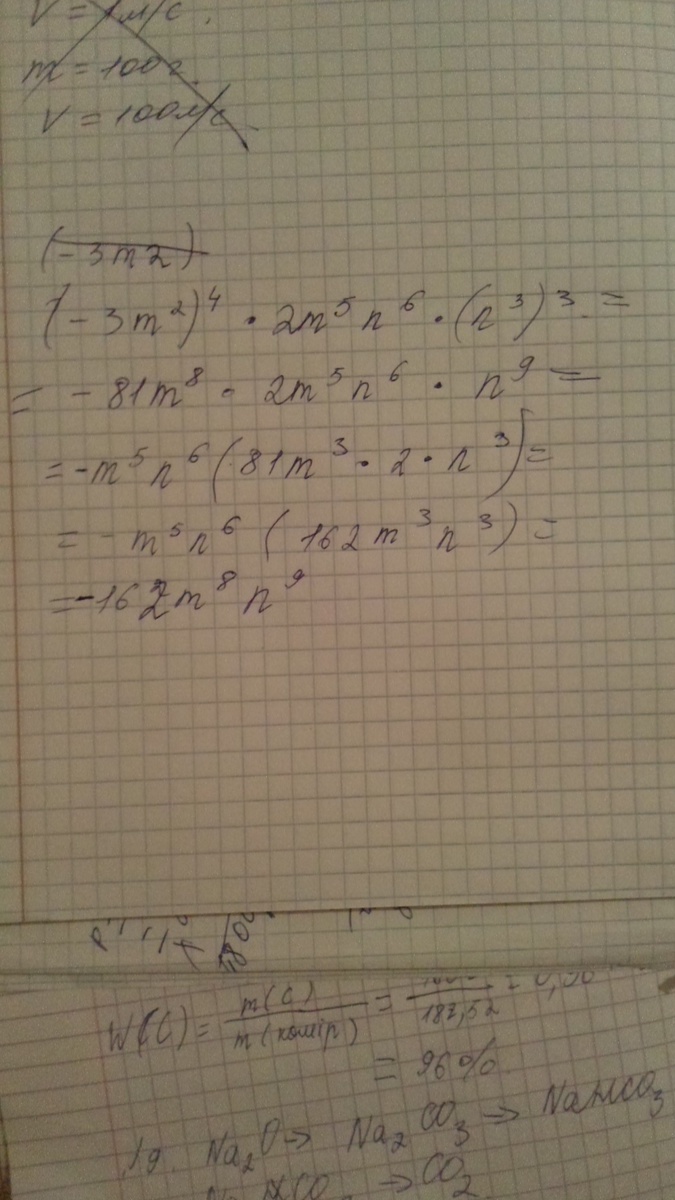 V = 1м/с.
m = 100г.
V = 100м/с
(-3m2)
(-3m²)⁴ · 2m⁵n⁶ · (n³)³ =
= -81m⁸ · 2m⁵n⁶ · n⁹ =
= -m⁵n⁶(81m³ · 2 · n³) =
= -m⁵n⁶(162m³n³) =
= -162m⁸n⁹
W(C) = m(C)/m(комір) = /187,52 =
= 96%.
1д. Na₂O → Na₂CO₃ → NaHCO₃
→ CO₂